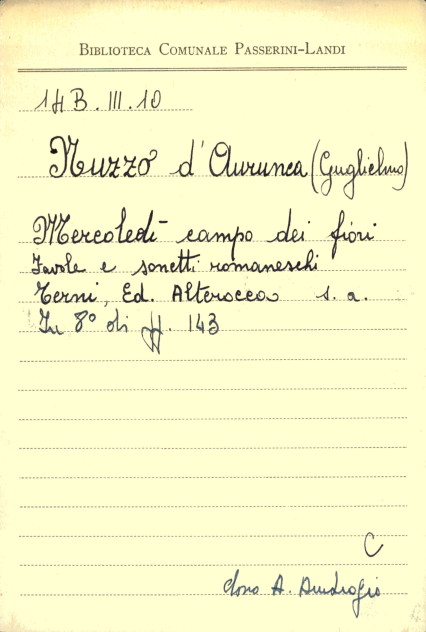 BIBLIOTECA COMUNALE PASSERINI-LANDI
14 B. III. 10
Nuzzo d'Aurunca (Guglielmo)
Mercoledì campo dei fiori
Favole e sonetti romaneschi
Terni, Ed. Alterocca s. a.
In 8° di pp. 143
C
dono A.